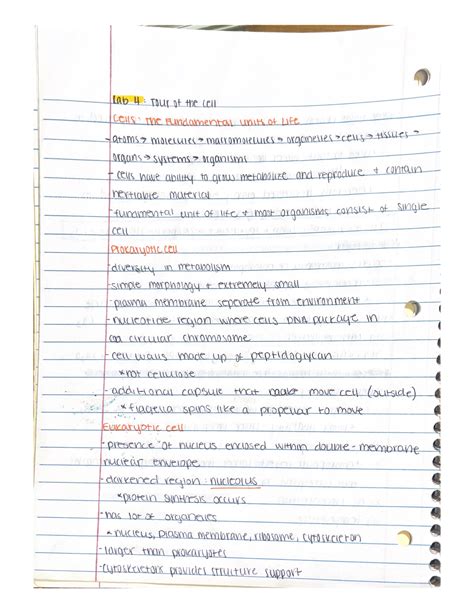 Lab 4: Tour of the cell
Cells: The Fundamental units of life
-atoms→ molecules→ macromolecules→ organelles→cells→ tissues→
organs→systems→organisms
-cells have ability to grow metabolize and reproduce & contain
heritable material
-fundmental unit of life & most organisms consist of single
cell
Prokaryotic cell
-diversity in metabolism
-simple morphology + extremely small
-plasma membrane seperate from environment
-nucleotide region where cells DNA package in
a circular chromosome
-cell walls made up of peptidoglycan
*not cellulose
-additional capsule that make move cell (outside)
*flagella spins like a propellar to move
Eukaryotic cell
-presence of nucleus enclosed within double-membrane
nuclear envelope
-darkened region: nucleolus
*protein synthesis occurs
-has lot of organelles
*nucleus, plasma membrane, ribosome, cytoskeleton
-larger than prokaryotes
-cytoskeletons provides structure support